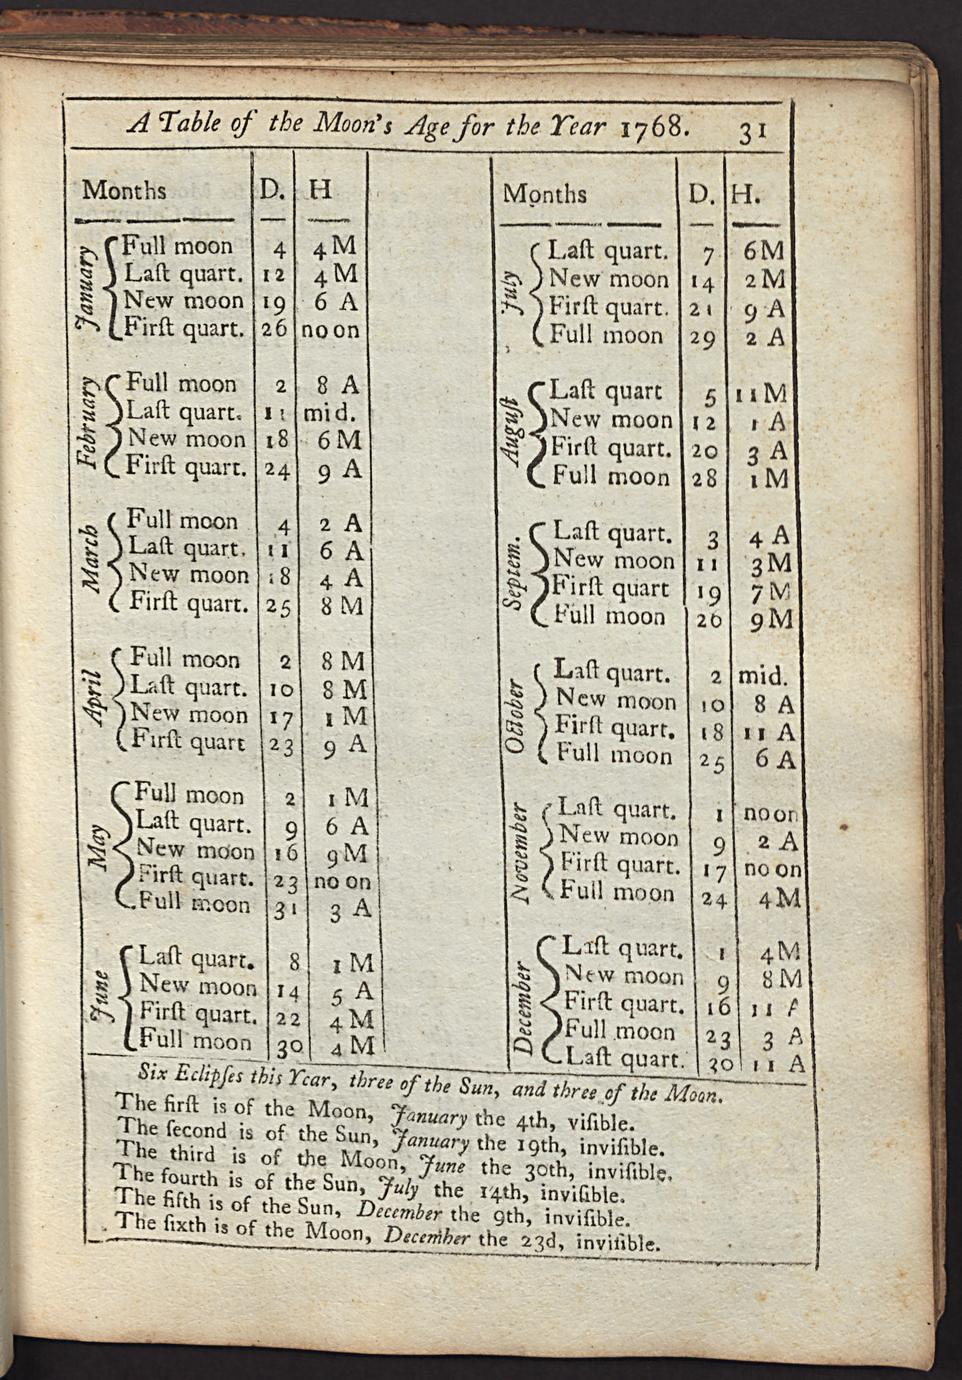 A Table of the Moon's Age for the Year 1768. 31
Months D. H
January
Full moon 4 4 M
Laſt quart. 12 4 M
New moon 19 6 A
Firſt quart. 26 noon
February
Full moon 2 8 A
Laſt quart. 11 mid.
New moon 18 6 M
Firſt quart. 24 9 A
March
Full moon 4 2 A
Laſt quart. 11 6 A
New moon 18 4 A
Firſt quart. 25 8 M
April
Full moon 2 8 M
Laſt quart. 10 8 M
New moon 17 1 M
Firſt quart 23 9 A
May
Full moon 2 1 M
Laſt quart. 9 6 A
New moon 16 9 M
Firſt quart. 23 noon
Full moon 31 3 A
June
Laſt quart. 8 1 M
New moon 14 5 A
Firſt quart. 22 4 M
Full moon 30 4 M
Months D. H.
July
Laſt quart. 7 6 M
New moon 14 2 M
Firſt quart. 21 9 A
Full moon 29 2 A
Auguſt
Laſt quart 5 11 M
New moon 12 1 A
Firſt quart. 20 3 A
Full moon 28 1 M
Septem.
Laſt quart. 3 4 A
New moon 11 3 M
Firſt quart 19 7 M
Full moon 26 9 M
October
Laſt quart. 2 mid.
New moon 10 8 A
Firſt quart. 18 11 A
Full moon 25 6 A
November
Laſt quart. 1 noon
New moon 9 2 A
Firſt quart. 17 noon
Full moon 24 4 M
December
Laſt quart. 1 4 M
New moon 9 8 M
Firſt quart. 16 11 A
Full moon 23 3 A
Laſt quart. 30 11 A
Six Eclipſes this Year, three of the Sun, and three of the Moon.
The firſt is of the Moon, January the 4th, viſible.
The ſecond is of the Sun, January the 19th, inviſible.
The third is of the Moon, June the 30th, inviſible.
The fourth is of the Sun, July the 14th, inviſible.
The fifth is of the Sun, December the 9th, inviſible.
The ſixth is of the Moon, December the 23d, inviſible.